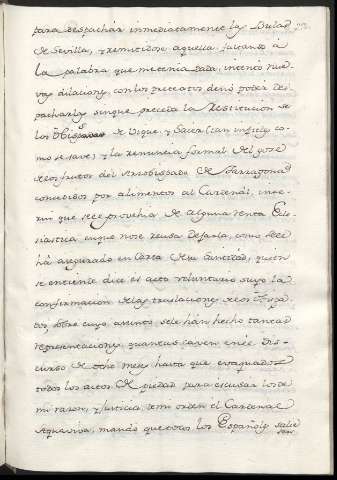 para despachar inmediatamente las Bulas
de Sevilla, y remitidose aquella faltando a
la palabra que me tenia dada, intentó nue-
vas dilaciones, con los pretextos de no poder des-
pacharlas aunque preceda la Restitucion de
los Obispados de Vique, y (tan injusta co-
mo se save) y la renuncia formal del goze
de los frutos del Arzobispado de Tarragona
concedidos por alimentos al Cardenal, inte-
rin que se le provehia de alguna renta Ecle-
siastica, en que no se reusa dejarla, como se le
há asegurado en Carta de su Santidad, quien
se entiende dice es acto voluntario suyo la
confirmacion de las translaciones de los Obispa-
dos, sobre cuyo asunto se le hán hecho tantas
representaciones, quantas caven en el Dis-
curso de otho mes, hasta que evaquados
todos los actos de piedad para escusar los de
mi razon, y Justicia de mi orden el Cardenal
Aquaviva, mandó que todos los Españoles salie-
sen